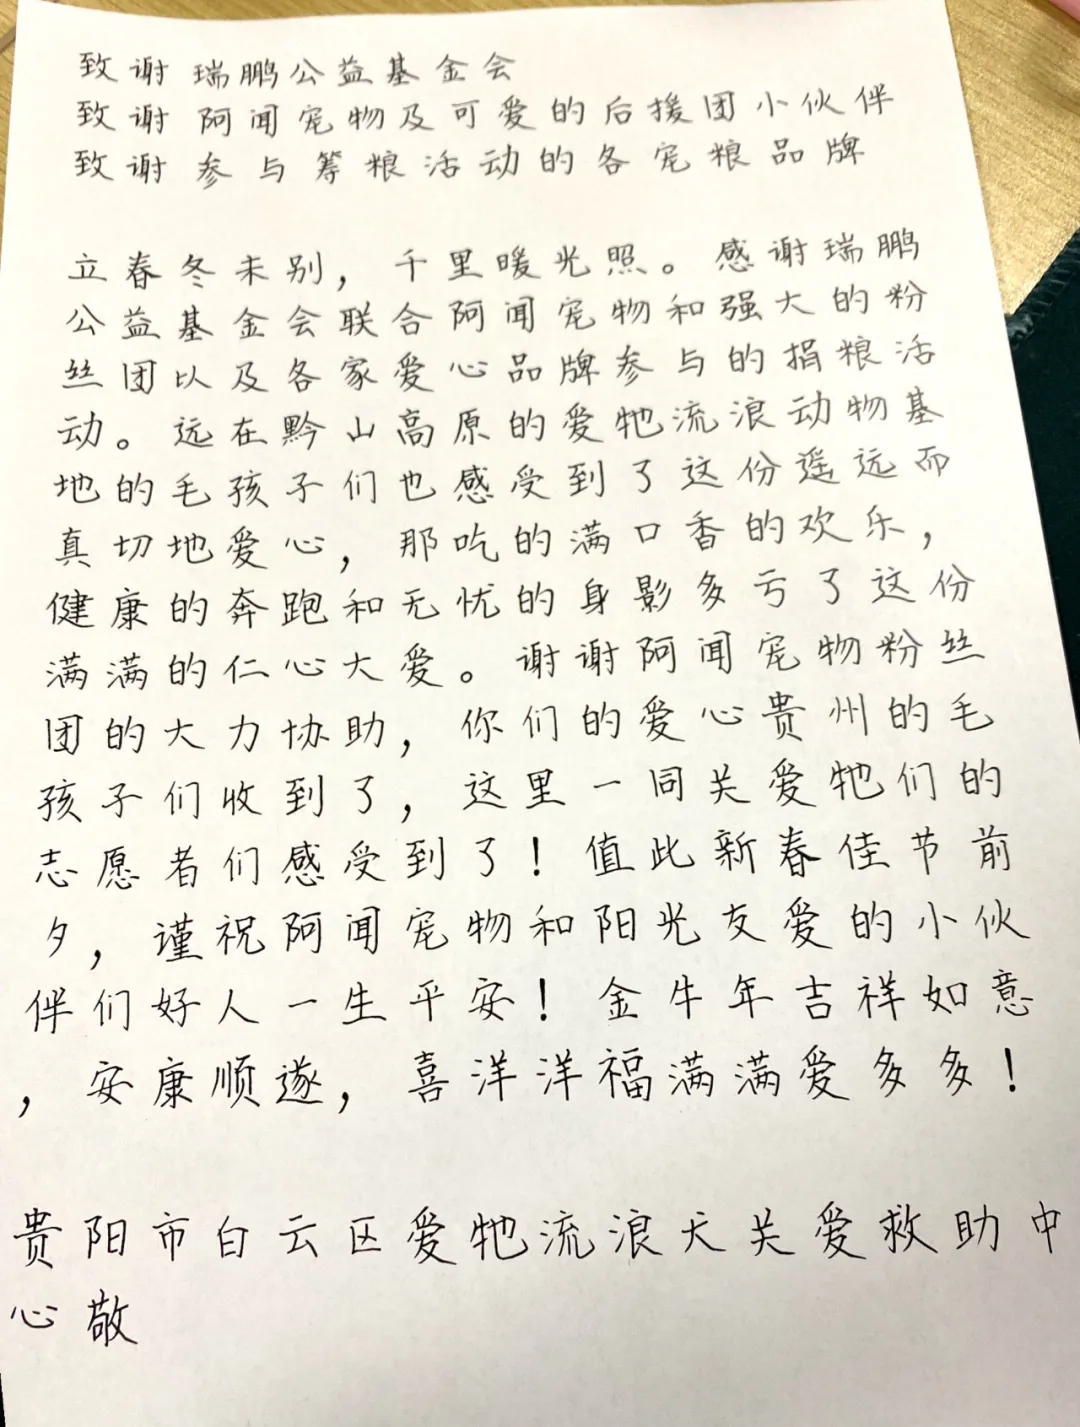 致谢 瑞鹏公益基金会
致谢 阿闻宠物及可爱的后援团小伙伴
致谢 参与筹粮活动的各宠粮品牌
立春冬未别，千里暖光照。感谢瑞鹏
公益基金会联合阿闻宠物和强大的粉
丝团以及各家爱心品牌参与的捐粮活
动。远在黔山高原的爱牠流浪动物基
地的毛孩子们也感受到了这份遥远而
真切地爱心，那吃的满口香的欢乐，
健康的奔跑和无忧的身影多亏了这份
满满的仁心大爱。谢谢阿闻宠物粉丝
团的大力协助，你们的爱心贵州的毛
孩子们收到了，这里一同关爱牠们的
志愿者们感受到了！值此新春佳节前
夕，谨祝阿闻宠物和阳光友爱的小伙
伴们好人一生平安！金牛年吉祥如意
，安康顺遂，喜洋洋福满满爱多多！
贵阳市白云区爱牠流浪犬关爱救助中
心敬